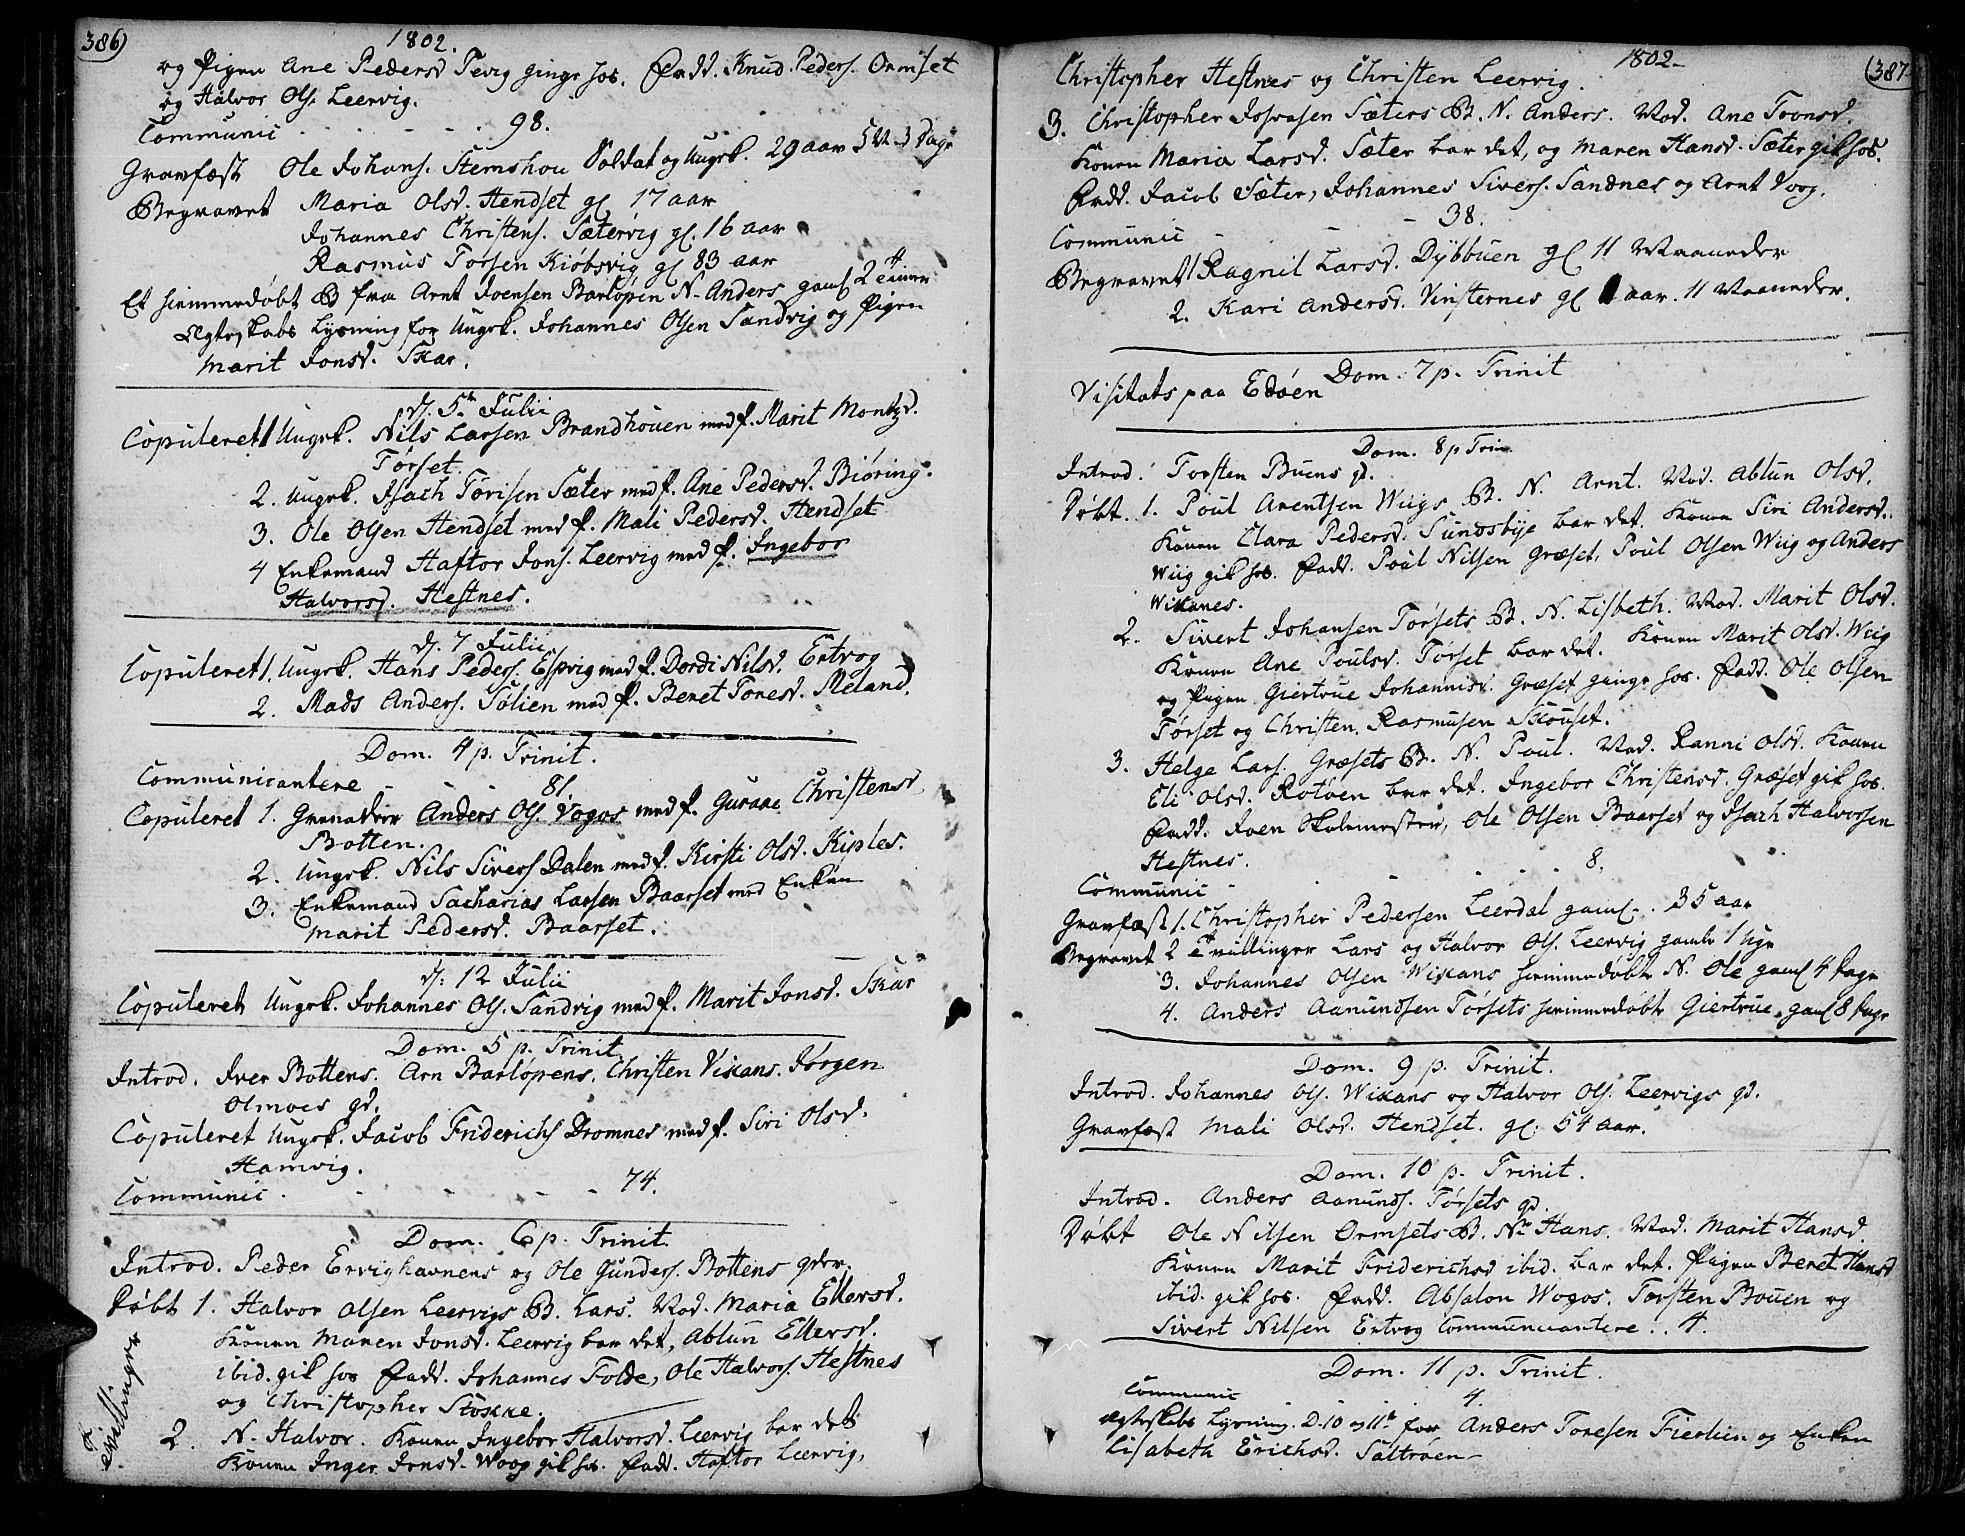 386)
1802.
og Pigen Ane Pedersd Tevig ginge hos. Fadd. Knud Peders. Ormset
og Halvor Ols. Leervig.
Communic - - - - 98.
Gravfæst Ole Johans. Stemshou Soldat og Ungk. 29 aar 5 M. 3 Dage
Begravet Maria Olsd. Hendset gl 17 aar
Johannes Christens. Sætervig gl. 16 aar
Rasmus Torsen Kiøbsvig gl 83 aar
Et hiemmedøbt B fra Arnt Joensen Barløpen N. Anders gaml 2 Timer
Ægteskabs Lysning for Ungk. Johannes Olsen Sandvig og Pigen
Marit Jonsd. Skar.
d. 5te Julii
Copuleret 1 Ungk. Nils Larsen Brandhouen med P. Marit Montzd.
Tørset.
2. Ungk. Isach Torisen Sæter med P. Ane Pedersd. Biøring.
3. Ole Olsen Hendset med P. Mali Pedersd. Hendset
4 Enkemand Haftor Jons. Leervig med P. Ingebor
Halvorsd. Hestnes.
d. 7 Julii
Copuleret 1. Ungk. Hans Peders. Espvig med P. Dordi Nilsd. Ertvog
2. Mads Anders. Sølien med P. Beret Toresd. Meland.
Dom. 4 p. Trinit.
Communicantere - - 81.
Copuleret 1. Grenadeer Anders Ols. Vogos med P. Guraae Christensd
Botten.
2. Ungk. Nils Sivers Dalen med P. Kirsti Olsd. Kiples.
3. Enkemand Sacharias Larsen Baarset med Enken
Marit Pedersd. Baarset.
d: 12 Julii
Copuleret Ungk. Johannes Ols. Sandvig med P. Marit Jonsd. Skar
Dom. 5 p. Trinit.
Introd. Iver Bottens. Arn Barløpens. Christen Vikans. Jørgen
Olmoes qd.
Copuleret Ungk. Jacob Friderichs Dromnes med P. Siri Olsd.
Hamvig.
Communic. - - - - 74.
Dom. 6 p. Trinit.
Introd. Peder Ervighavnens og Ole Gunders. Bottens qder.
Døbt 1. Halvor Olsen Leervigs B. Lars. Mod. Maria Ellersd.
Konen Maren Jonsd. Leervig bar det, Ablun Ellersd.
ibid. gik hos Fadd. Johannes Folde, Ole Halvors. Hestnes
og Christopher Stokke.
Tvillinger
2. N. Halvor. Konen Ingebor Halvorsd. Leervig bar det
Konen Inger Jonsd. Woog gik hos. Fadd. Haftor Leervig,
1802-
(387
Christopher Hestnes og Christen Leervig.
3. Christopher Josvasen Sæters B. N. Anders. Mod. Ane Tronsd.
Konen Maria Larsd. Sæter bar det, og Maren Hansd. Sæter gik hos.
Fadd. Jacob Sæter, Johannes Sivers. Sandnes og Arnt Voog.
Communic - - - 38.
Begravet 1 Ragnil Larsd. Dybbuen gl 11 Maaneder
2. Kari Andersd. Vinsternes gl 1 aar. 11 Maaneder.
Dom. 7 p. Trinit
Visitats paa Edøen
Dom. 8 p Trin.
Introd. Torsten Buens qd.
Døbt. 1. Poul Arentsen Wiigs B. N. Arnt. Mod. Ablun Olsd.
Konen Clara Pedersd. Sundsbye bar det. Konen Siri Andersd.
Wiig gik hos. Fadd. Poul Nilsen Græset, Poul Olsen Wiig og Anders
Wikanes.
2. Sivert Johansen Tørsets B. N. Lisbeth. Mod. Marit Olsd.
Konen Ane Poulsd. Tørset bar det. Konen Marit Olsd. Wiig
og Pigen Giertrue Johannisd. Græset ginge hos. Fadd. Ole Olsen
Tørset og Christen Rasmusen Skouset.
3. Helge Lars. Græsets B. N. Poul. Mod. Ranni Olsd. Konen
Eli Olsd. Rotoen bar det. Ingebor Christensd. Græset gik hos.
Fadd. Joen Skolemester, Ole Olsen Baarset og Isach Halvorsen
Hestnes.
Communic - - - - 8.
Gravfæst 1. Christopher Pedersen Leerdal gaml. 35 aar
Begravet 2 Tvillinger Lars og Halvor Ols. Leervig gamle 1 Uge
3. Johannes Olsen Wikans hiemmedøbte N. Ole gaml 4 Dage
4. Anders Aamundsen Tørsets hiemmedøbte Giertrue gaml 8 Dage
Dom. 9 p. Trinit.
Introd. Johannes Ols. Wikans og Halvor Ols. Leervigs qd.
Gravfæst Mali Olsd. Hendset. gl. 54 aar.
Dom. 10 p. Trinit.
Introd. Anders Aamunds. Tørsets qd.
Døbt Ole Nilsen Ormsets B. Nn Hans. Mod. Marit Hansd.
Konen Marit Friderichsd ibid. bar det. Pigen Beret Hansd
ibid. gik hos. Fadd. Absalon Wogos. Torsten Bouen og
Sivert Nilsen Ertvog Communicantere . . 4.
Dom. 11 p. Trinit.
Communic 4.
Ægteskabs Lysning. D. 10 og 11te for Anders Toresen Fierlien og Enken
Lisabeth Erichsd. Saltrøen-